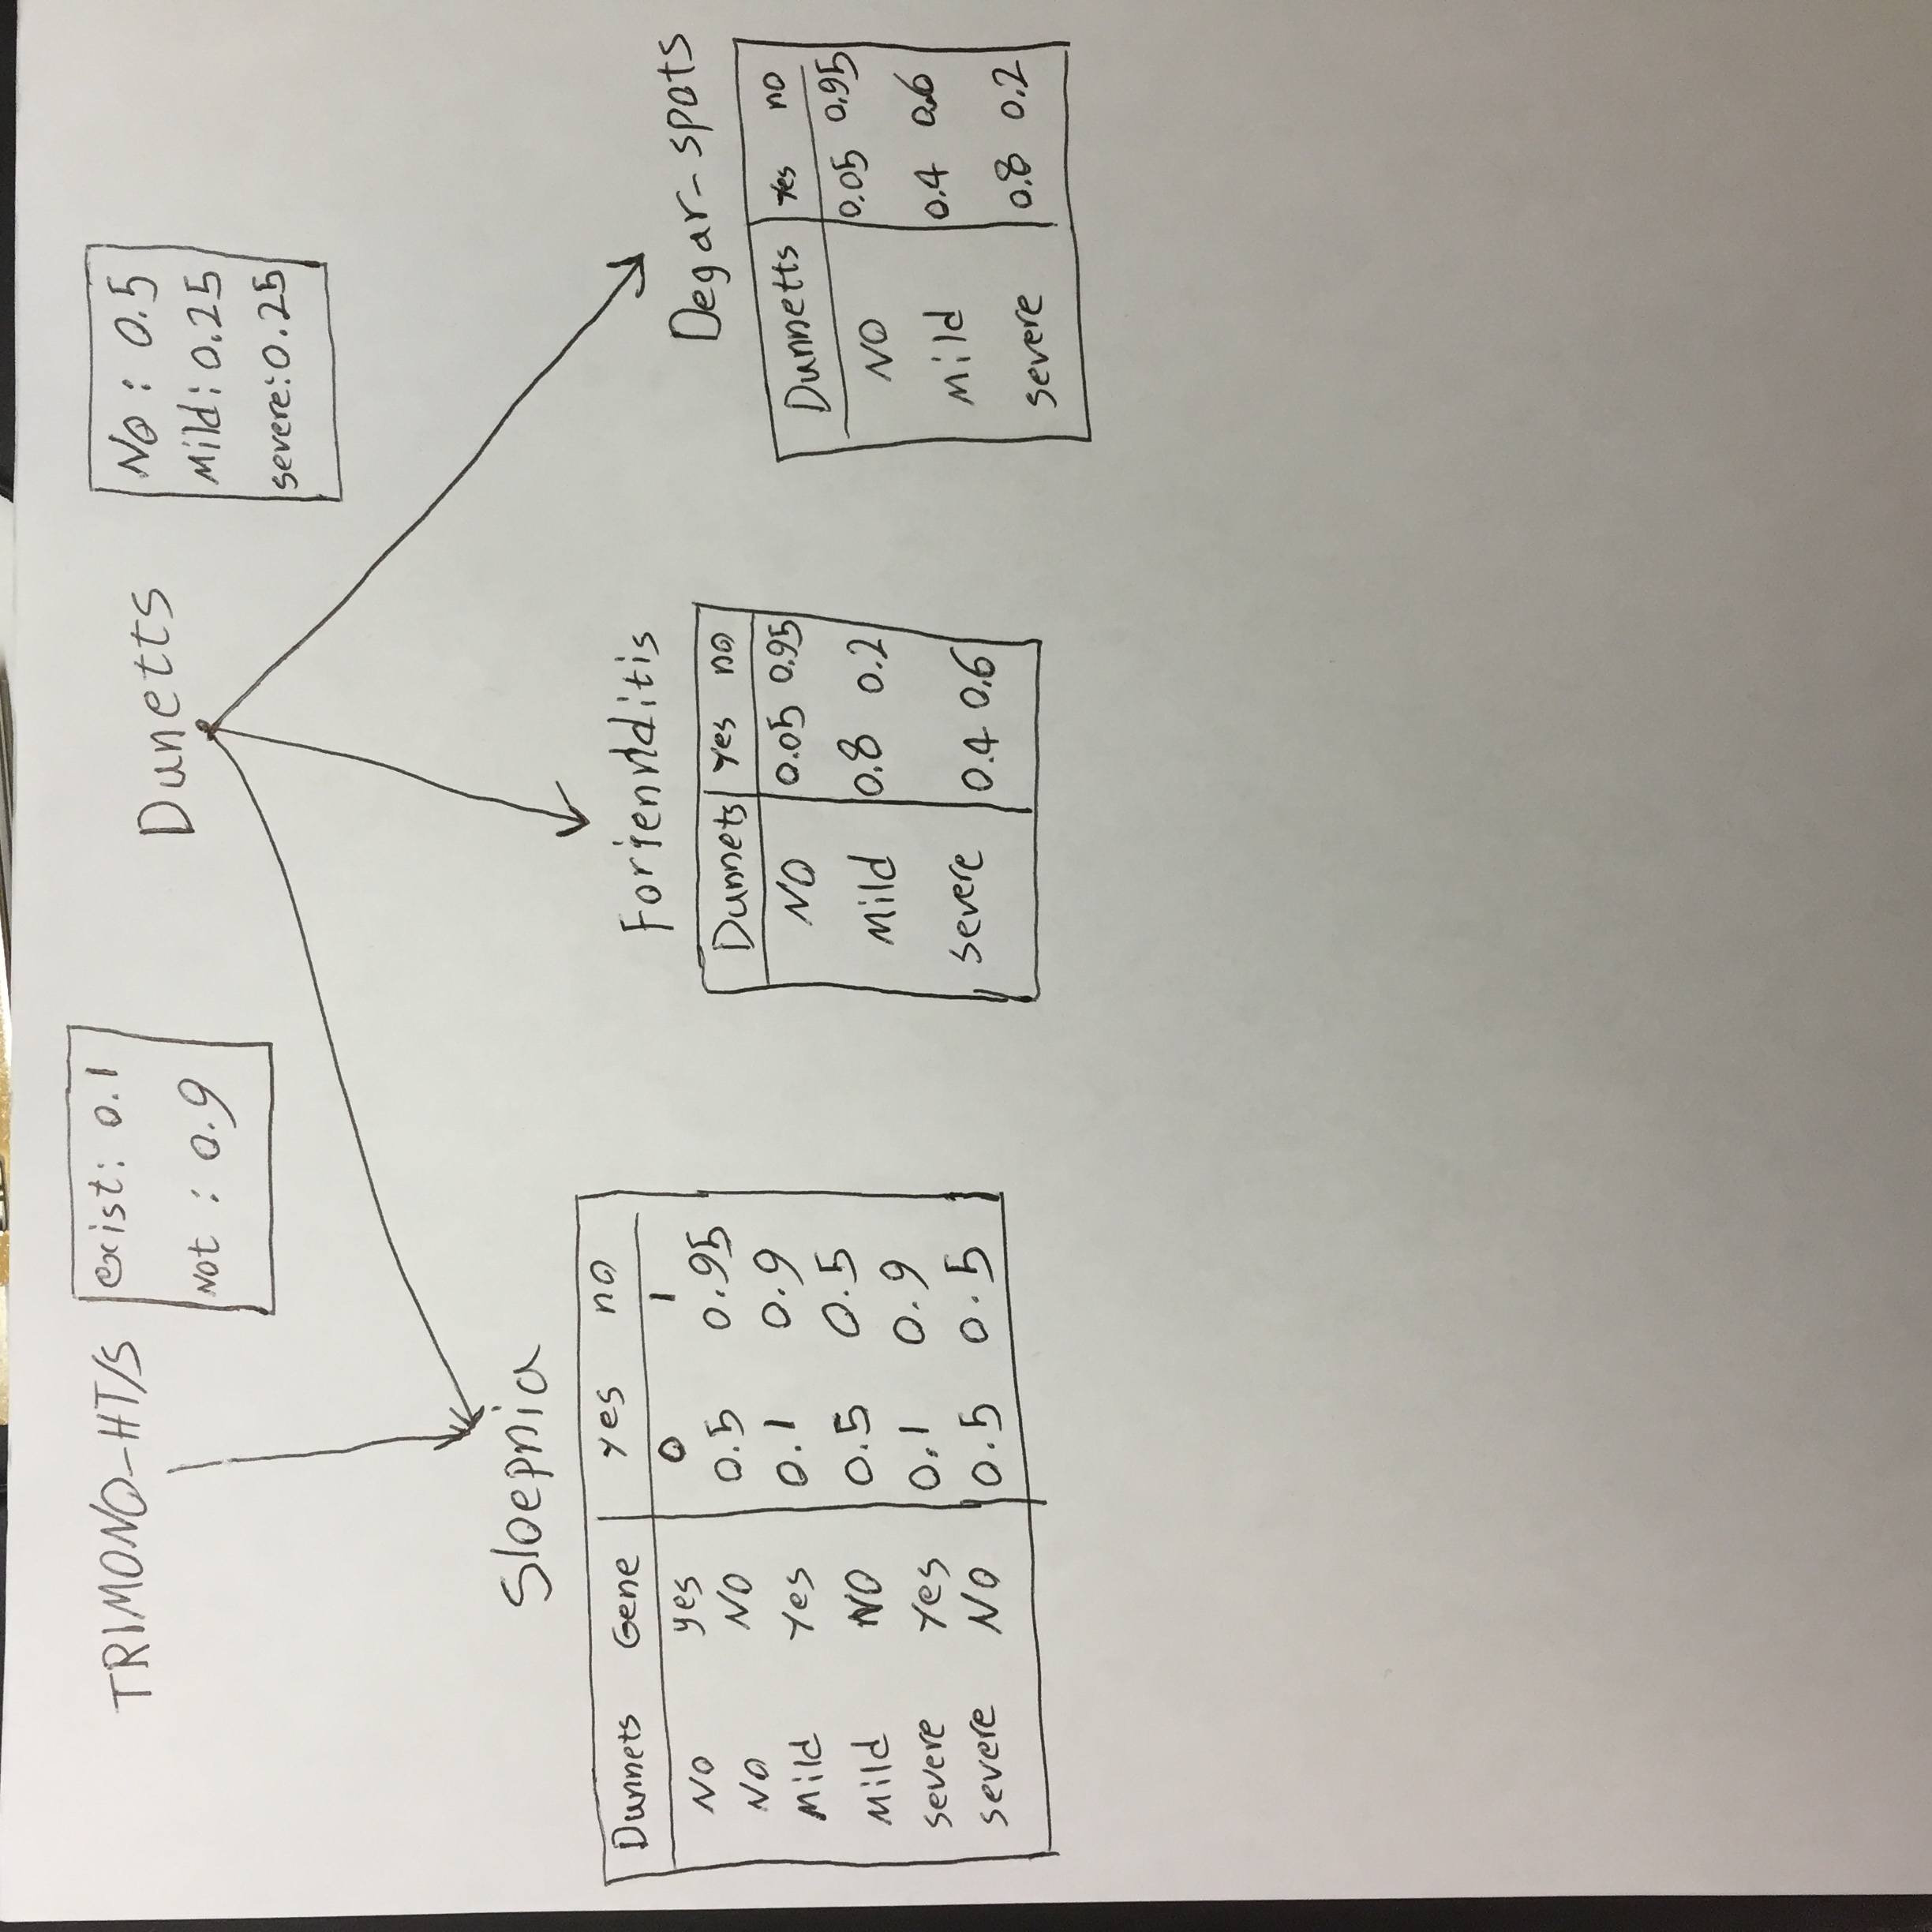 TRIMONO-HT/S
exist: 0.1
Not : 0.9
Dunetts
No : 0.5
Mild: 0.25
severe: 0.25
Sloepnia
Dunnets Gene yes no
NO yes 0 1
NO NO 0.5 0.95
Mild Yes 0.1 0.9
Mild NO 0.5 0.5
severe Yes 0.1 0.9
severe NO 0.5 0.5
Dunnets yes no
NO 0.05 0.95
Mild 0.8 0.2
severe 0.4 0.6
Degar-spots
Dunnetts Yes no
NO 0.05 0.95
Mild 0.4 0.6
severe 0.8 0.2